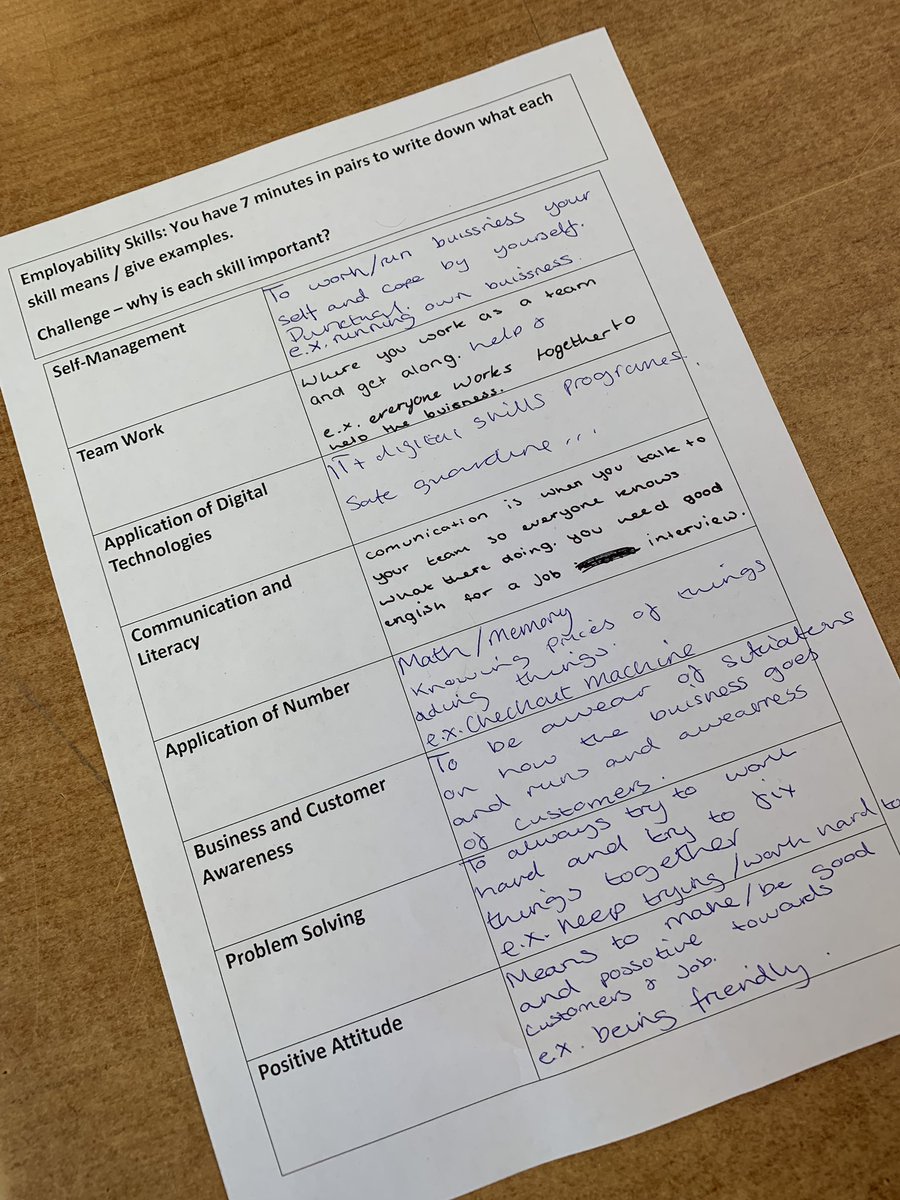 Employability Skills: You have 7 minutes in pairs to write down what each
skill means / give examples.
Challenge – why is each skill important?
Self-Management
To work/run buissness your
self and cope by yourself.
Punctual.
e.x. running own buissness.
Team Work
Where you work as a team
and get along. help &
e.x. everyone works together to
help the buisness.
Application of Digital
Technologies
IT + digital skills programes.
Safe guardine...
Communication and
Literacy
comunication is when you talk to
your team so everyone knows
what there doing. you need good
english for a job interview.
Application of Number
Math/Memory
Knowing prices of things
ading things.
e.x. Checkout machine
Business and Customer
Awareness
To be awear of situaterns
on how the buisness goes
and runs and awearness
of customers.
Problem Solving
To always try to work
hard and try to fix
things together
e.x. keep trying/work hard to
Positive Attitude
Means to make/be good
and possotive towards
customers & job.
e.x. being friendly.